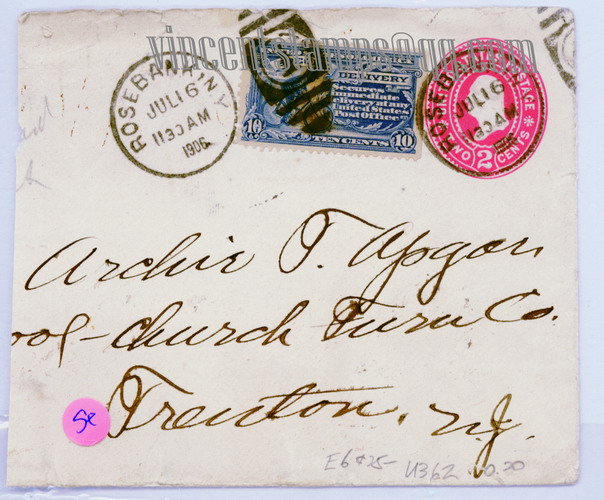 vincentstamps@qq.com
ROSEBANK, N.Y.
JUL 16
1130 AM
1906
DELIVERY
Secures
immediate
delivery at any
United States
Post Office
10 TEN CENTS 10
ROSEBANK, N.Y.
JUL 16
1130 AM
POSTAGE
TWO 2 CENTS
Archie T. Apgar
Church Furn Co.
Trenton, N.J.
Se
E6 $25-
U362 $0.20